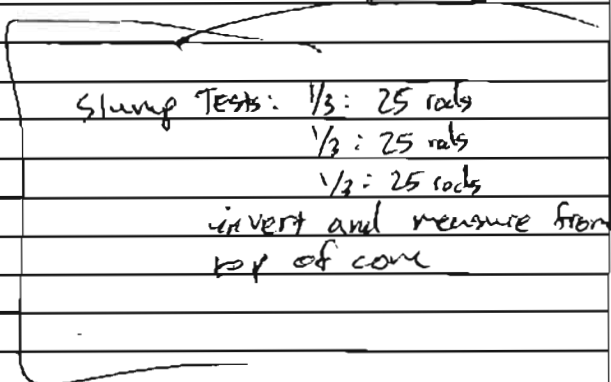 Slump Tests: 1/3: 25 rods
1/3: 25 rods
1/3: 25 rods
invert and measure from
top of cone